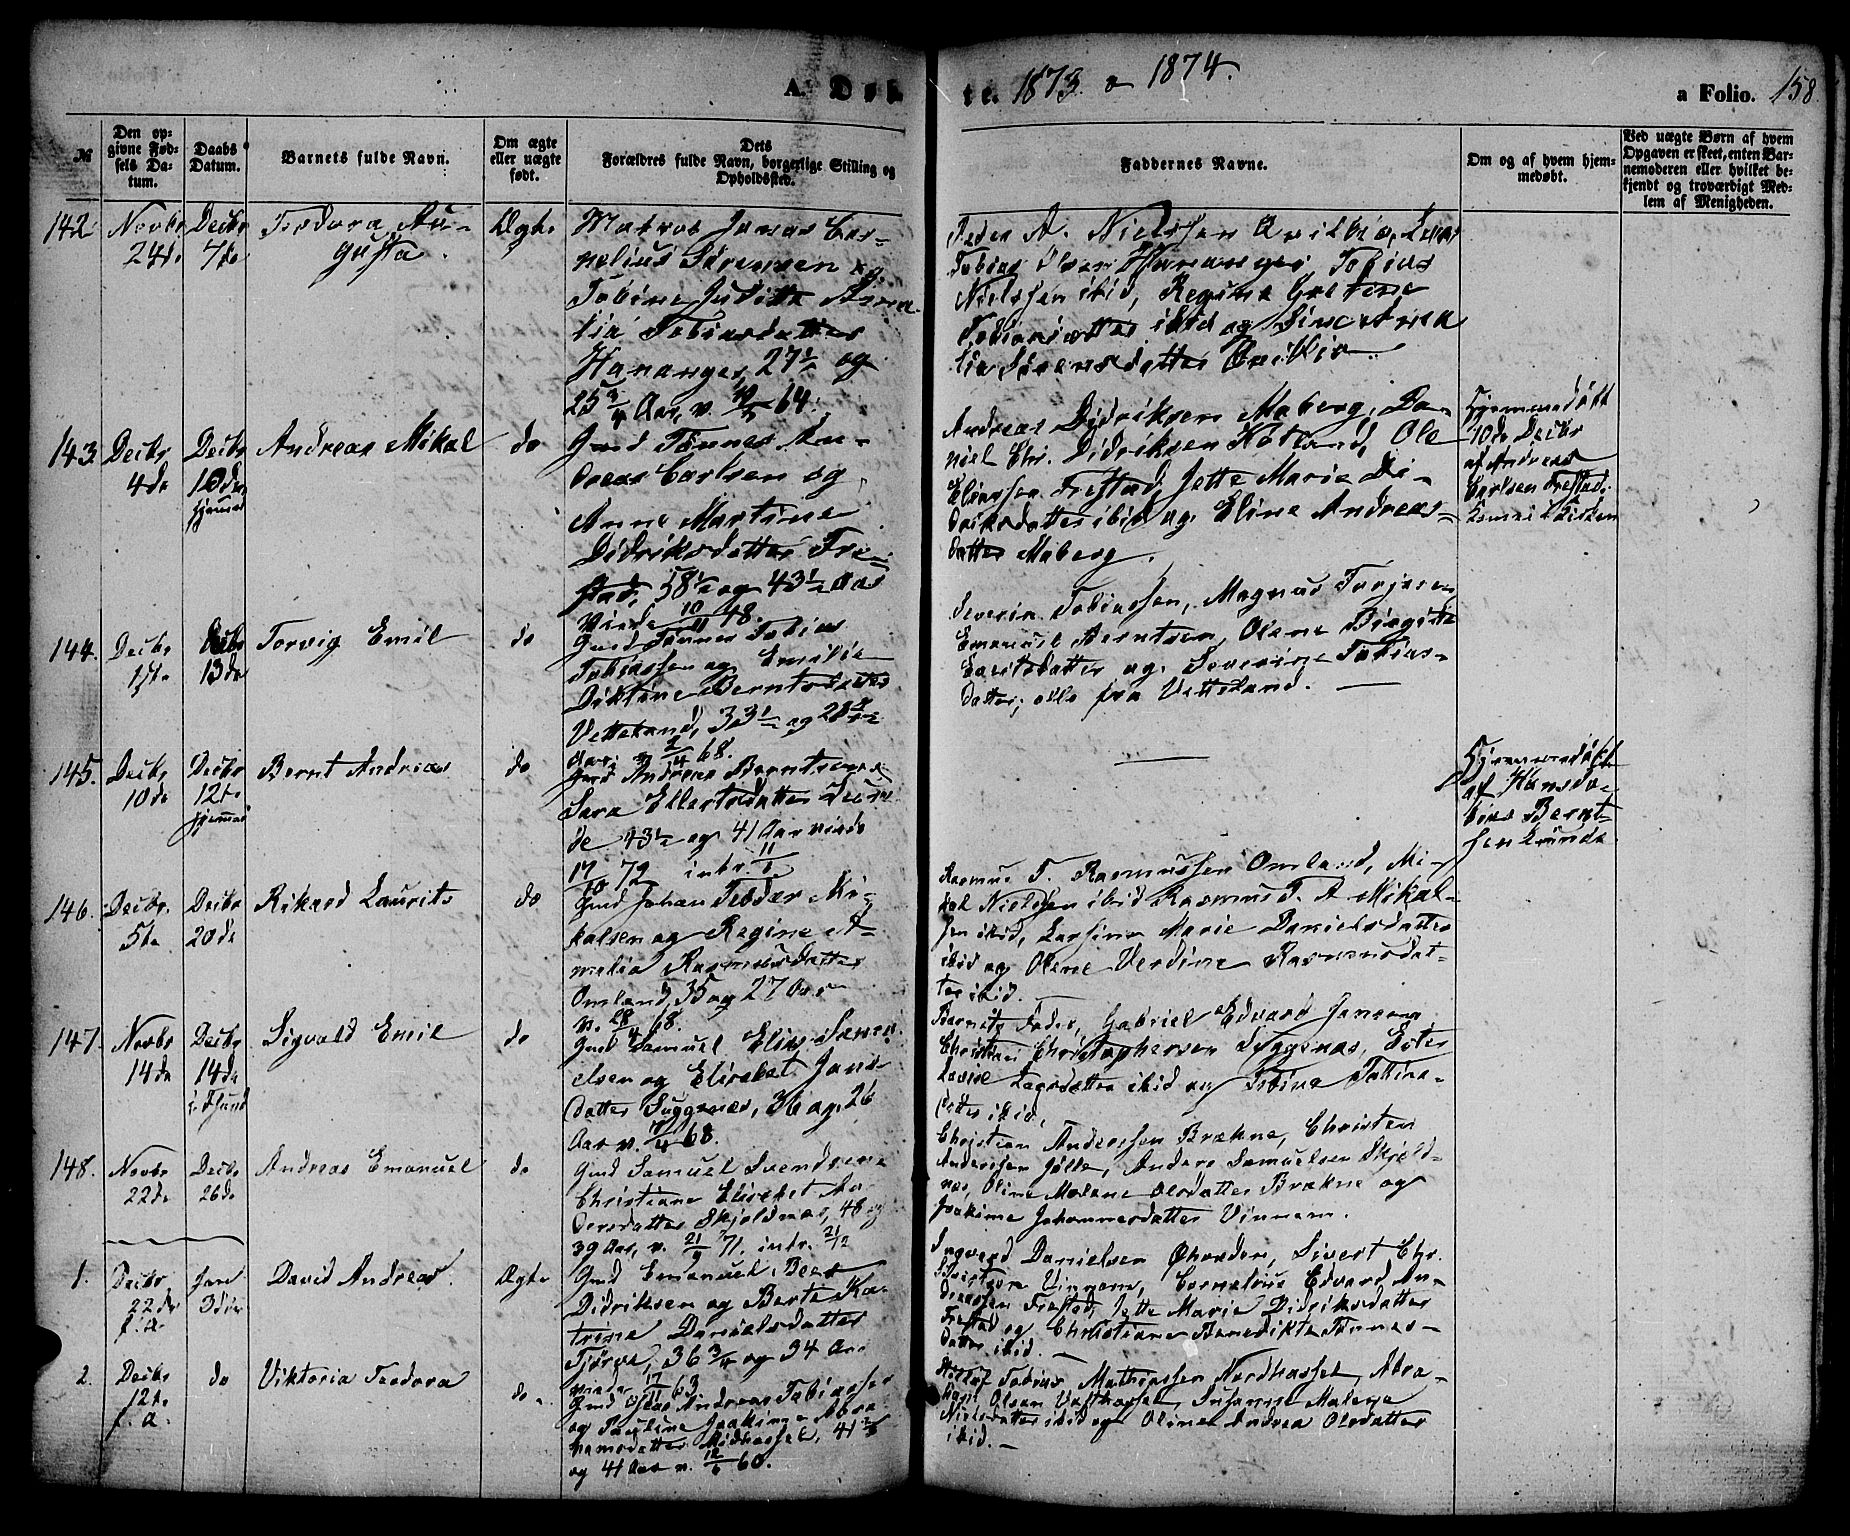 A. Døb
te. 1873 & 1874.
a Folio. 158
№
Den op-
givne Fød-
sels Da-
tum.
Daabs
Datum.
Barnets fulde Navn.
Om ægte
eller uægte
født.
Dets
Forældres fulde Navn, borgerlige Stilling og
Opholdssted.
Faddernes Navne.
Om og af hvem hjem-
medøbt.
Ved uægte Børn af hvem
Opgaven er skeet, enten Bar-
nemoderen eller hvilket be-
kjendt og troværdigt Med-
lem af Menigheden.
142.
Novbr
24de
Decbr
7de
Teodora Au-
gusta.
Ægte
Matros Jonas Cor-
nelius Sörensen og
Tobine Juditte Ama
lia Tobiasdatter
Hananger, 27½ og
25¾ Aar, v. 64.
Peder A. Nielssen
Tobias Olsen Hananger, Tobias
Nielssen ibid, Regine
Tobiasdatter ibid og Sine Ama
lia Sörensdatter
143.
Decbr
4de
Decbr
10de
hjemme
Andreas Mikal
do
Gmd Tönnes An-
dreas Carlsen og
Anne Martine
Didriksdatter Fre-
stad, 58½ og 43½ Aar
Viede 10/11 48.
Andreas Didriksen Maberg, Da-
niel Chr. Didriksen Kotland, Ole
Eliassen Frestad, Jette Marie Di-
driksdatter ibid og Eline Andreas-
datter Maberg.
Hjemmedöbt
10de Decbr
af Andreas
Carlsen Frestad.
144.
Decbr
1ste
Decbr
13de
Torvig Emil
do
Gmd Tönnes Tobias
Tobiassen og Emilie
Diktine Berntsdatter
Vetteland, 33½ og
Aar, v. 2/4 68.
Severin Tobiassen, Magnus Torjusen
Emanuel Berntsen, Olene Birgitte
datter og Severine Tobias-
datter, alle fra Vetteland. —
145.
Decbr
10de
Decbr
12te
hjemme
Bernt Andreas
do
Gmd Andreas Berntsen og
Sara Ellertsdatter Lun-
de 43½ og 41 Aar viede
17/10 72 intr. 11/1
—
Hjemmedöbt
af Hans To-
bias Bernt-
sen Lunde.
146.
Decbr.
5te
Decbr
20de
Rikard Laurits
do
Gmd Johan Teodor Mi-
kalsen og Regine A-
malia Rasmusdatter
Omland, 35 og 27 Aar
v. 28/4 68.
Rasmus T. Rasmussen Omland, Mi-
kal Nielssen ibid Rasmus T. A. Mikal-
sen ibid, Larsine Marie Danielsdatter
ibid og Olene Verdine Rasmusdat-
ter ibid. —
147.
Novbr
14de
Decbr
14de
i Fsund
Sigvald Emil
do
Gmd Samuel Elias Samu-
elsen og Elisebet Jans-
datter Duggenæs, 36 og 26
Aar v. 68.
Barnets Fader, Gabriel Edvard Jansen
Christian Christophersen Duggenæs, Ester
Lovise datter ibid og Tobine
datter ibid,
148.
Novbr
22de
Decbr
26de
Andreas Emanuel
do
Gmd Samuel Svendsen og
Christiane Elisebet An-
dersdatter Skjoldnæs, 48 og
39 Aar, v. 21/9 71. intr. 21/12
Christian Andersen Brækne, Christen
Andersen Jölle, Anders Samuelsen Skjold-
næs, Oline Malene Olsdatter Brækne og
Joakime Johannesdatter Vinnem.
1.
Decbr
22de
f. a.
Janr
3die
David Andreas.
Ægte
Gmd Emanuel Beer
Didriksen og Berte Ka-
trine Danielsdatter
Tjörve, 36¾ og 34 Aar
viede 17/11 63
Ingvard Danielsen Öhodden, Sivert Chr.
Vinnem, Cornelius Edvard An-
dreassen Frestad, Jette Marie Didriksdatter
Frestad og Christiane Benedikte Tönnes-
datter ibid. —
2.
Decbr
12te
f. a.
do
Viktoria Teodora
do.
Gmd Olai Andreas Tobiassen
og Pauline Joakime Abra
hamsdatter Midhassel, 41¾
og 41 Aar v. 12/6 60.
Tobias Mathiassen Nordhassel, Abra-
ham Olsen Vesthassel, Susanne Malene
Nielsdatter ibid og Oline Andrea Olsdatter
ibid. —